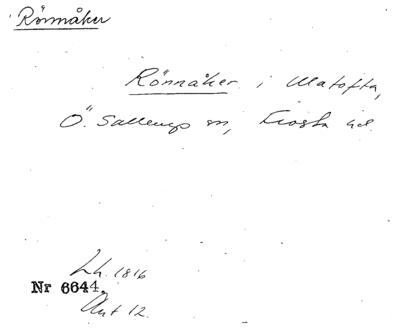 Rönnåker
Rönnåker i Ulatofta,
Ö. Sallerup sn, Frosta hd.
Lh. 1816
Nr 6644.
Akt 12.